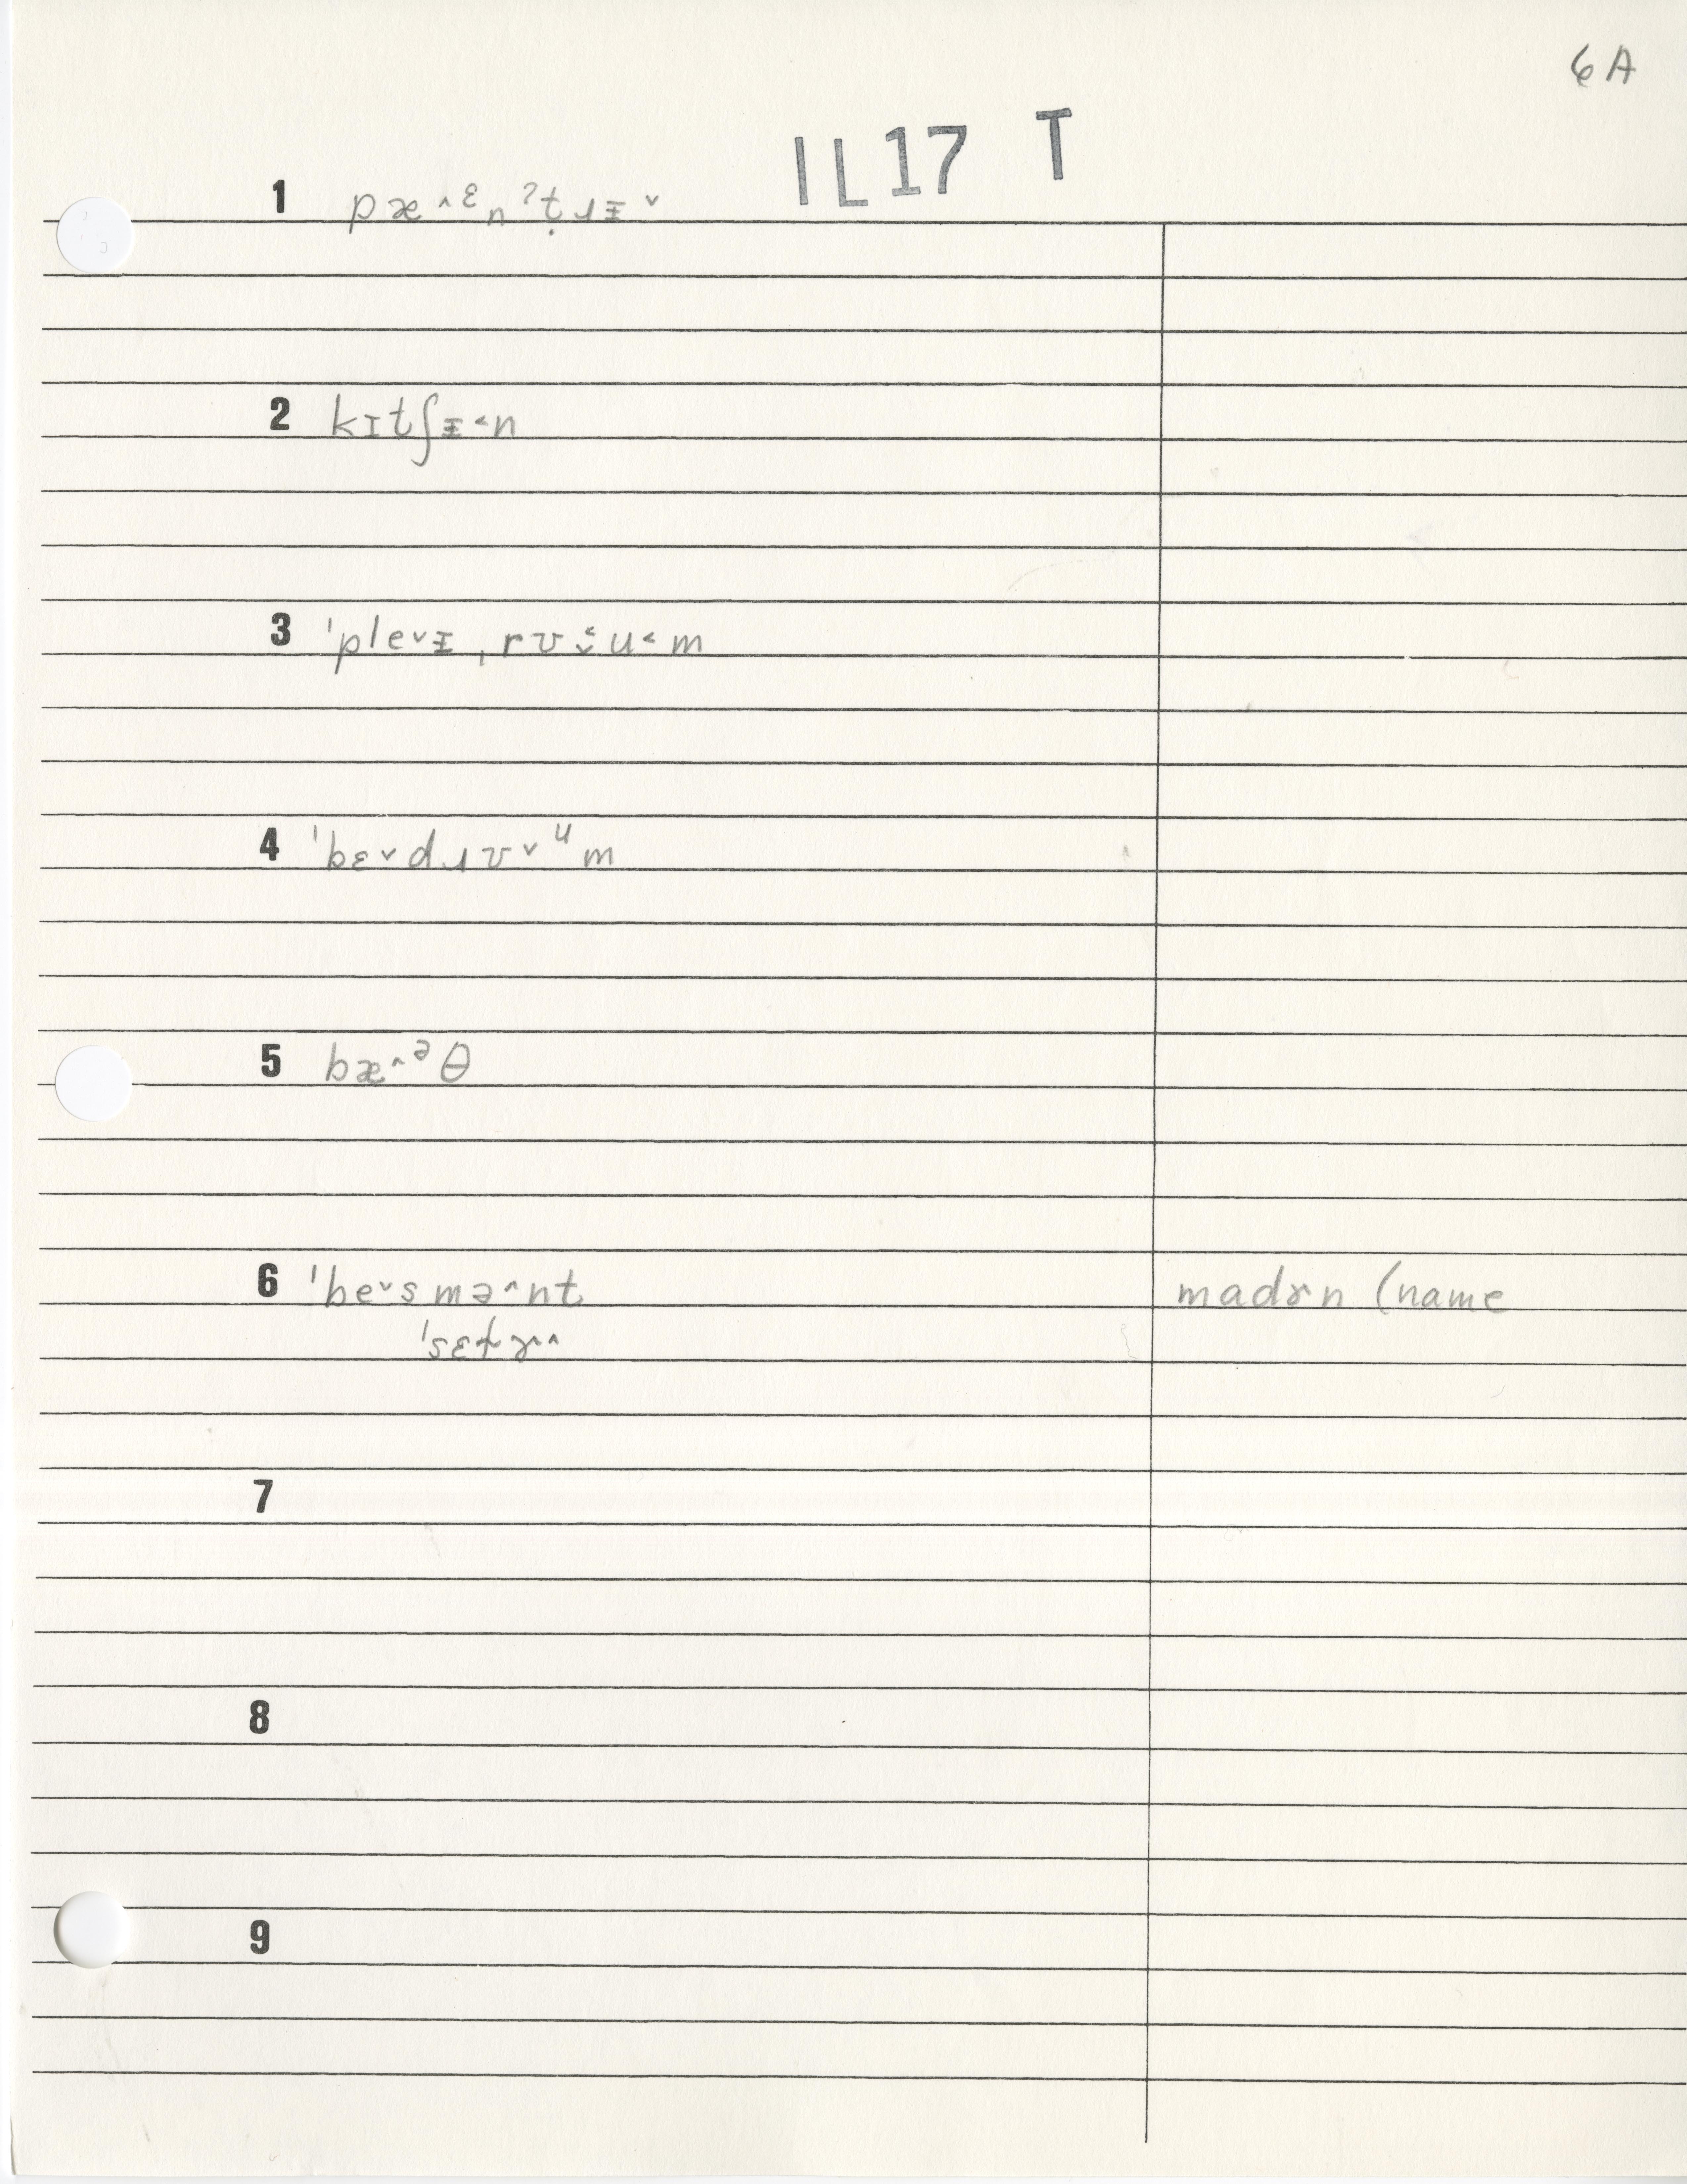 6A
IL17 T
1 pæ˄ᵋnˀṭɹᵻ˅
2 kɪtʃᵻ˂n
3 ˈple˅ᵻˌrʊ˂̬u˂m
4 ˈbɛ˅dɹʊ˅ᵘm
5 bæ˄ᵊθ
6 ˈbe˅smə˄nt madɚn (name
7
8
9